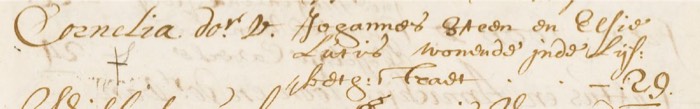 Cornelia. do.r v. Johannes Steen en Elsie
Lutis wonende inde Lijs:
beth: straet . . — . 29.